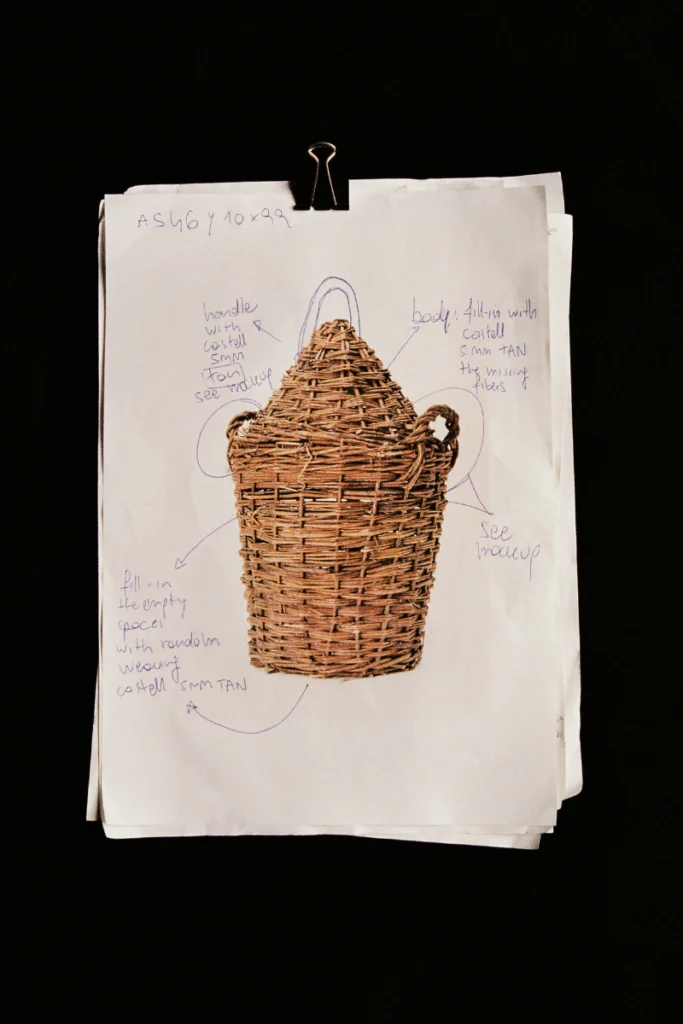 handle
with
castell
5mm
TAN
see mockup
body: fill-in with
castell
5 mm TAN
the missing
fibers
see
mockup
fill-in
the empty
spaces
with random
weaving
castell 5mm TAN